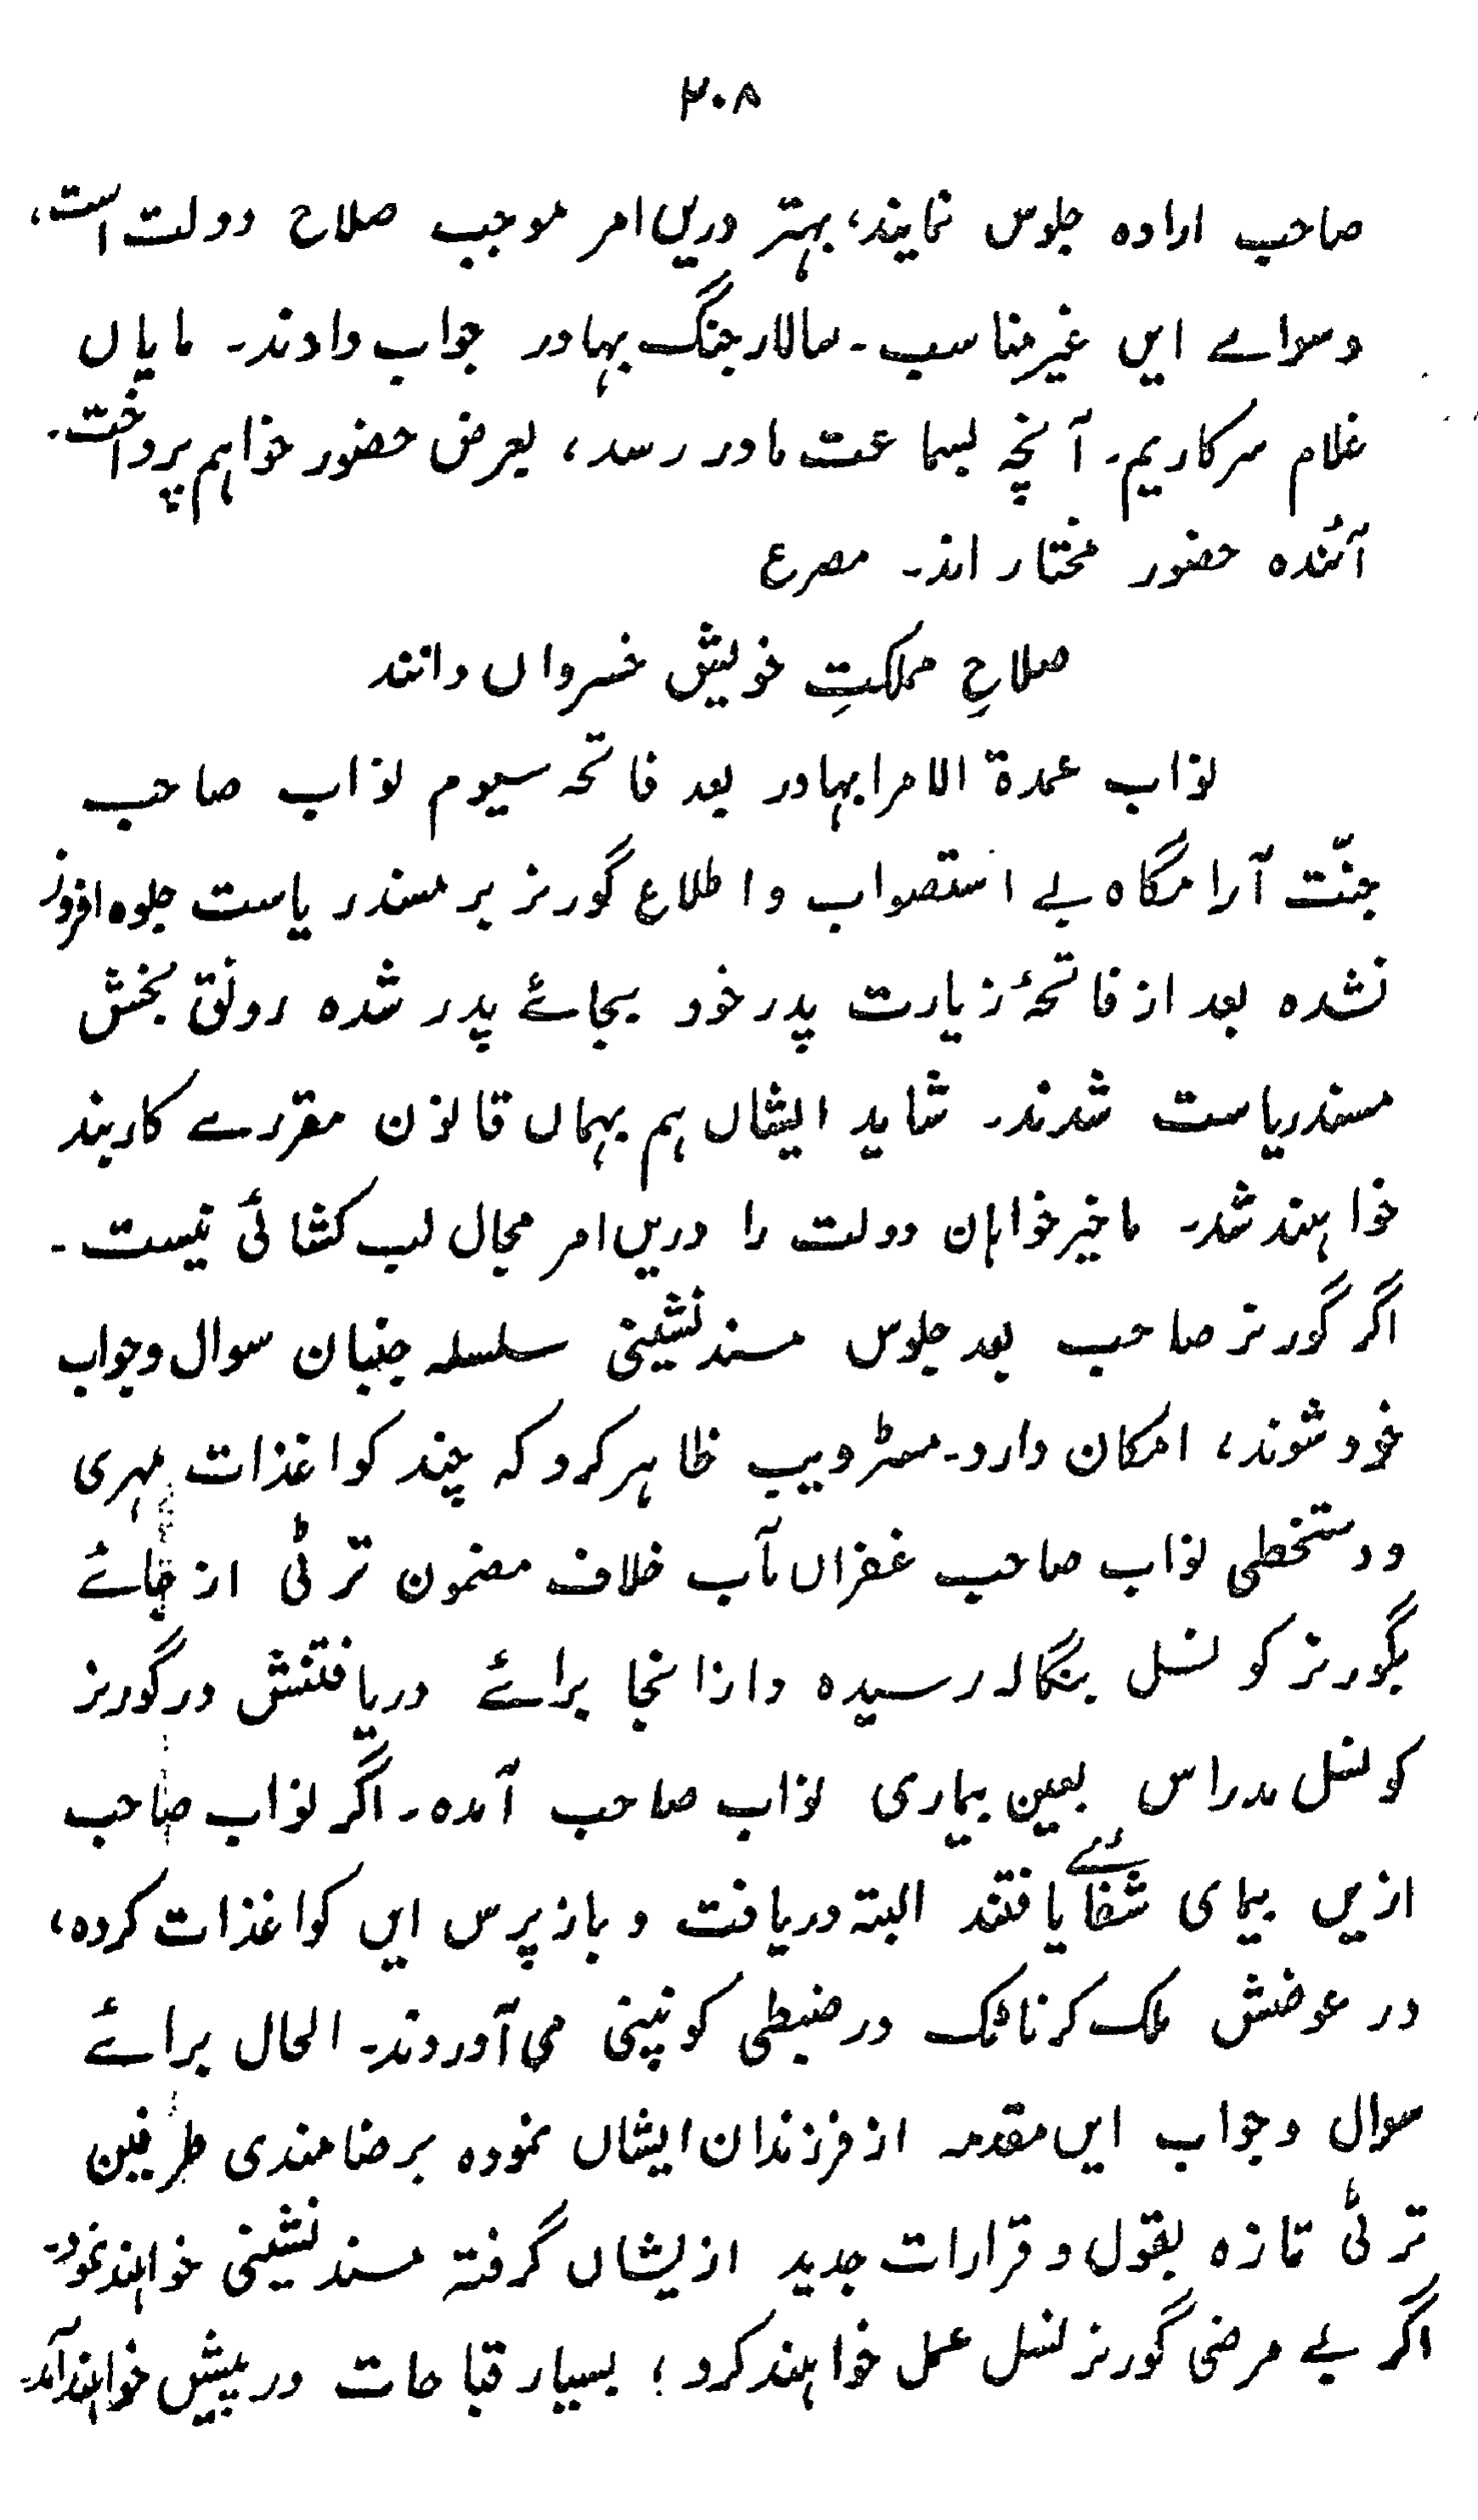 ۲۰۸
صاحب ارادہ جلوس نمایند، بہتر دریں امر موجب صلاح دولت است،
و سواے ایں غیر مناسب۔ سالار جنگ بہادر جواب دادند۔ مایاں
غلام سرکاریم۔ آنچہ بسماعت ما در رسد، بعرض حضور خواہم پرداخت۔
آئندہ حضور مختار اند۔ مصرع
صلاحِ مملکتِ خویش خسرواں دانند
نواب عمدۃ الامرا بہادر بعد فاتحہ سیوم نواب صاحب
جنّت آرامگاہ بے استصواب و اطلاع گورنر بر مسند ریاست جلوہ افروز
نشدہ بعد از فاتحۂ زیارت پدر خود بجائے پدر شدہ رونق بخش
مسند ریاست شدند۔ شاید ایشاں ہم بہماں قانون مقررے کاربند
خواہند شد۔ ما خیر خواہان دولت را دریں امر مجال لب کشائی نیست۔
اگر گورنر صاحب بعد جلوس مسند نشینی سلسلہ جنبان سوال و جواب
خود شوند، امکان دارد۔ مسٹر ویب ظاہر کرد کہ چند کواغذات مہری
و دستخطی نواب صاحب غفراں مآب خلاف مضمون ترٹی از جائے
بگورنر کونسل بنگالہ رسیدہ و ازانجا برائے دریافتنش در گورنر
کونسل مدراس بعین بیماری نواب صاحب آمدہ۔ اگر نواب صاحب
ازیں بیمای شفائے یافتند البتہ دریافت و باز پرس ایں کواغذات کردہ،
در عوضش ملک کرناٹک در ضبطی کونپنی می آوردند۔ الحال برائے
سوال و جواب ایں مقدمہ از فرزندان ایشاں نمودہ بر ضامندی طرفین
ترٹی تازہ بقول و قرارات جدید ازیشاں گرفتہ مسند نشینی خواہند نمود۔
اگر بے مرضی گورنر نسل عمل خواہند کرد؛ بسیار قباحات در پیش خواہند آمد۔